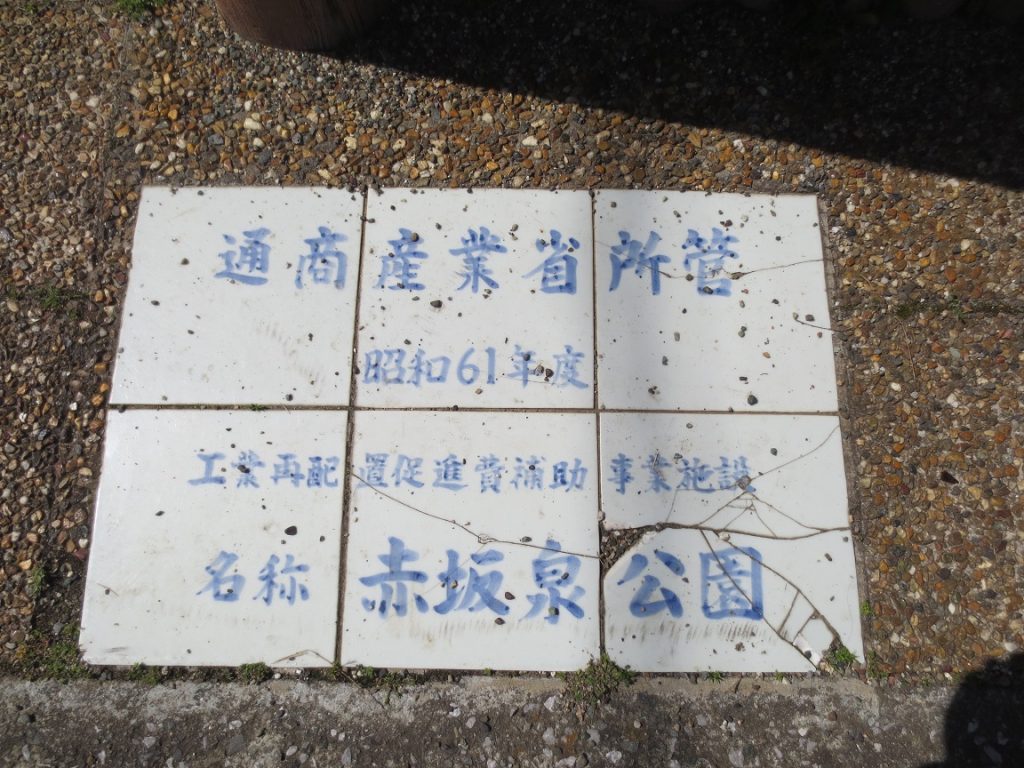 通商産業省所管
昭和61年度
工業再配置促進費補助事業施設
名称 赤坂泉公園